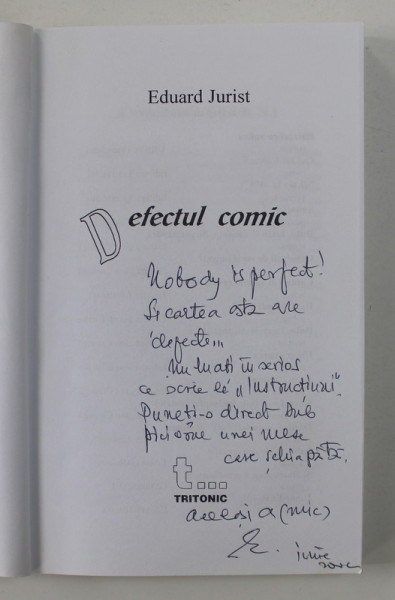 Eduard Jurist
Defectul comic
Nobody is perfect!
Și cartea asta are
defecte...
Nu luați în serios
ce scrie la "Instrucțiuni".
Puneți-o direct sub
piciorul unei mese
care șchiapătă.
t...
TRITONIC
același a (mic)
E.
iunie